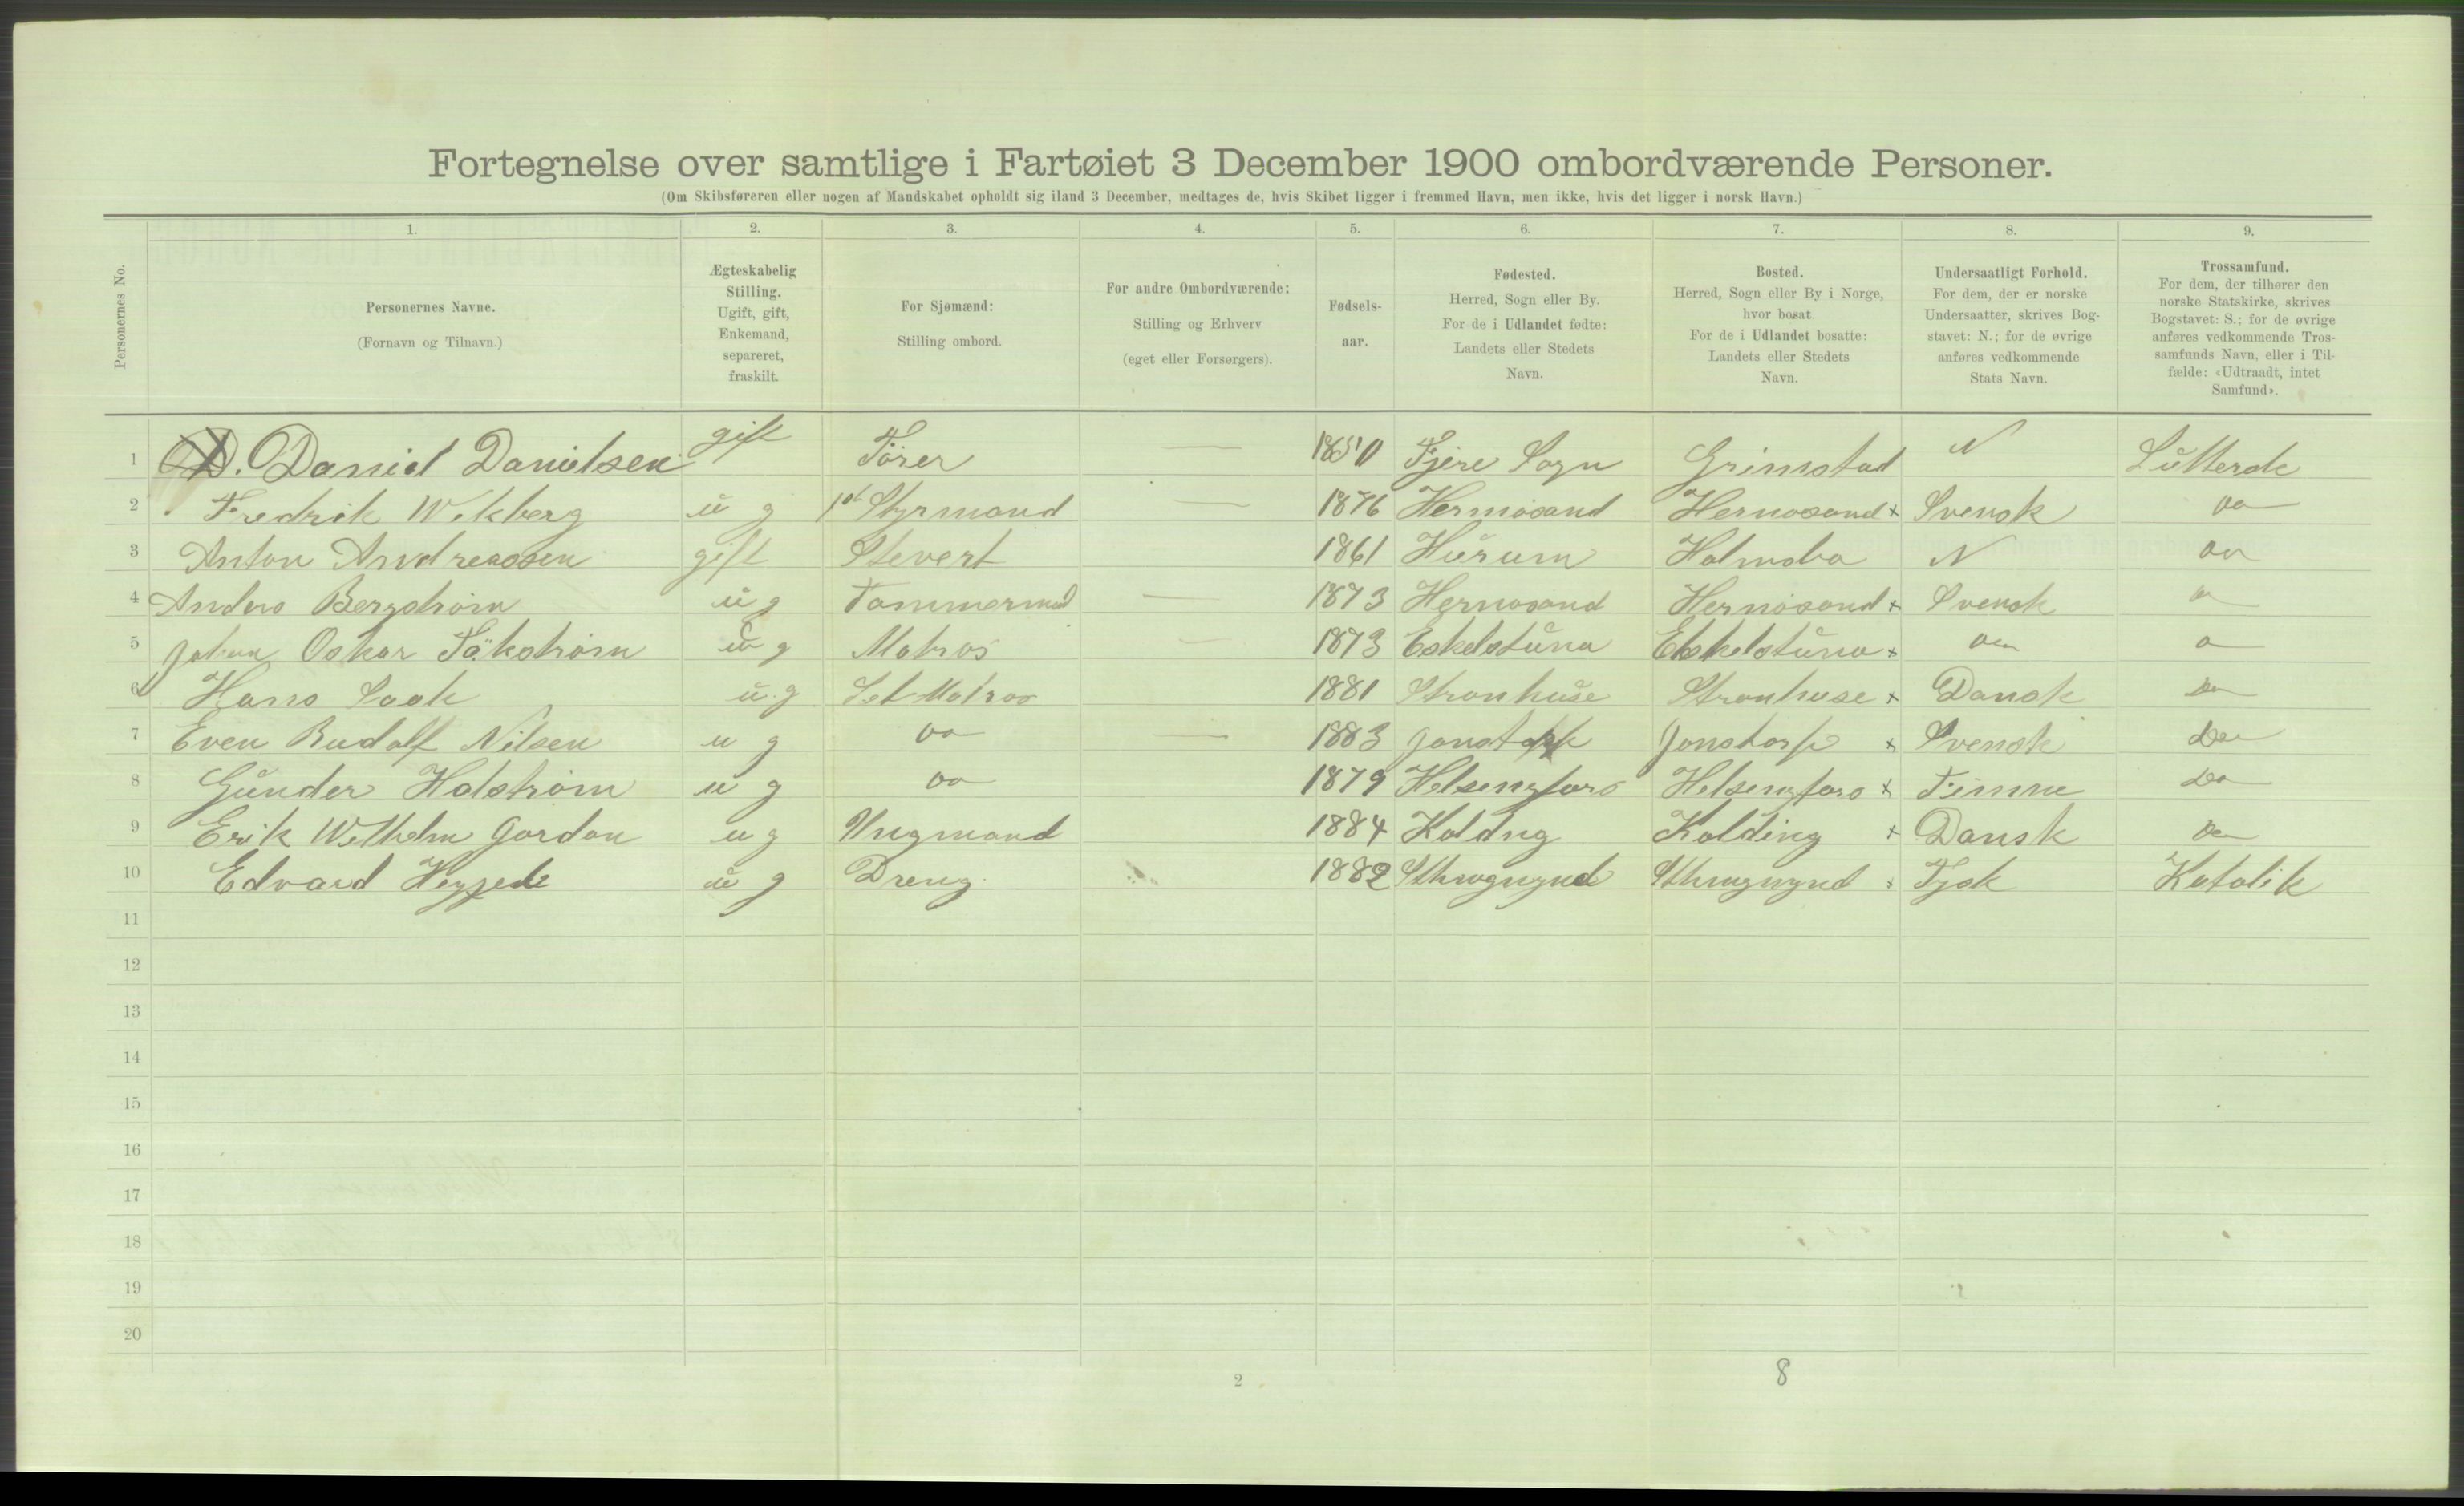 Fortegnelse over samtlige i Fartøiet 3 December 1900 ombordværende Personer.
(Om Skibsføreren eller nogen af Mandskabet opholdt sig iland 3 December, medtages de, hvis Skibet ligger i fremmed Havn, men ikke, hvis det ligger i norsk Havn.)
Personernes No.
1. 2. 3. 4. 5. 6. 7. 8. 9.
Personernes Navne.
(Fornavn og Tilnavn.)
Ægteskabelig
Stilling.
Ugift, gift,
Enkemand,
separeret,
fraskilt.
For Sjømænd:
Stilling ombord.
For andre Ombordværende:
Stilling og Erhverv
(eget eller Forsørgers).
Fødsels-
aar.
Fødested.
Herred, Sogn eller By.
For de i Udlandet fødte:
Landets eller Stedets
Navn.
Bosted.
Herred, Sogn eller By i Norge,
hvor bosat.
For de i Udlandet bosatte:
Landets eller Stedets
Navn.
Undersaatligt Forhold.
For dem, der er norske
Undersaatter, skrives Bog-
stavet: N.; for de øvrige
anføres vedkommende
Stats Navn.
Trossamfund.
For dem, der tilhører den
norske Statskirke, skrives
Bogstavet: S.; for de øvrige
anføres vedkommende Tros-
samfunds Navn, eller i Til-
fælde: «Udtraadt, intet
Samfund».
1 D. Daniel Danielsen gift Förer — 1850 Fjere Sogn Grimstad N Lutterde
2 Fredrik Wikberg u g 1st Styrmand — 1876 Hernosand Hernosand x Svensk Do
3 Anton Andreassen gift Stevert 1861 Hurum Holmsbo N Do
4 Anders Bergstrøm u g Tommermand — 1873 Hernosand Hernosand x Svensk Do
5 Johan Oskar u g Matros — 1873 Eskelstuna Eskelstuna x Do Do
6 Hans u g Let Matros 1881 Stranhuse Stranhuse x Dansk Do
7 Even Rudolf Nilsen u g Do — 1883 Jonstorp Jonstorp x Svensk Do
8 Gunder Holstrøm u g Do 1879 Helsengfors Helsengfors x Finne Do
9 Erik Wilhelm Gordon u g Ungmand 1884 Koldng Kolding x Dansk Do
10 Edvard u g Dreng 1882 Tysk Katolik
11
12
13
14
15
16
17
18
19
20
2
8